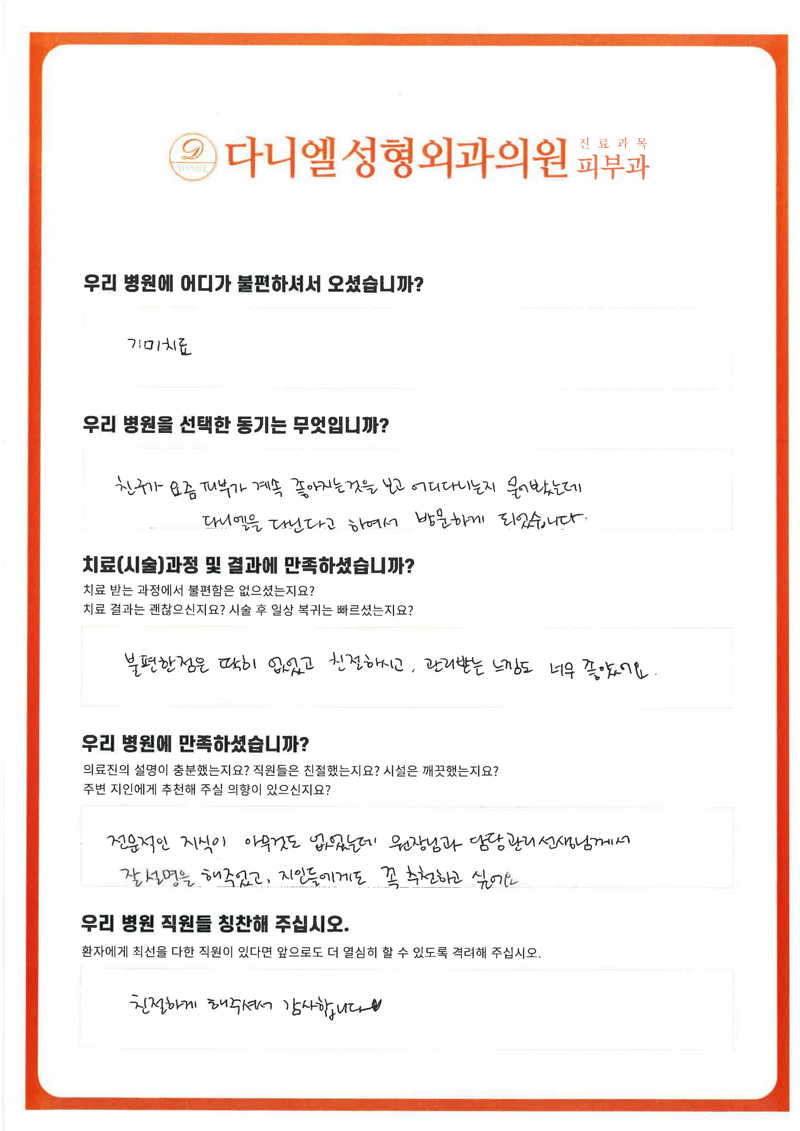 다니엘성형외과의원
진료과목
피부과
우리 병원에 어디가 불편하셔서 오셨습니까?
기미치료
우리 병원을 선택한 동기는 무엇입니까?
친구가 요즘 피부가 계속 좋아지는것을 보고 어디다니는지 물어봤는데
다니엘을 다닌다고 하여서 방문하게 되었습니다.
치료(시술)과정 및 결과에 만족하셨습니까?
치료 받는 과정에서 불편함은 없으셨는지요?
치료 결과는 괜찮으신지요? 시술 후 일상 복귀는 빠르셨는지요?
불편한점은 딱히 없었고 친절하시고, 관리받는 느낌도 너무 좋았어요.
우리 병원에 만족하셨습니까?
의료진의 설명이 충분했는지요? 직원들은 친절했는지요? 시설은 깨끗했는지요?
주변 지인에게 추천해 주실 의향이 있으신지요?
전문적인 지식이 아무것도 없었는데 원장님과 담당관리선생님께서
잘 설명을 해주었고, 지인들에게도 꼭 추천하고 싶어요
우리 병원 직원들 칭찬해 주십시오.
환자에게 최선을 다한 직원이 있다면 앞으로도 더 열심히 할 수 있도록 격려해 주십시오.
친절하게 해주셔서 감사합니다♥